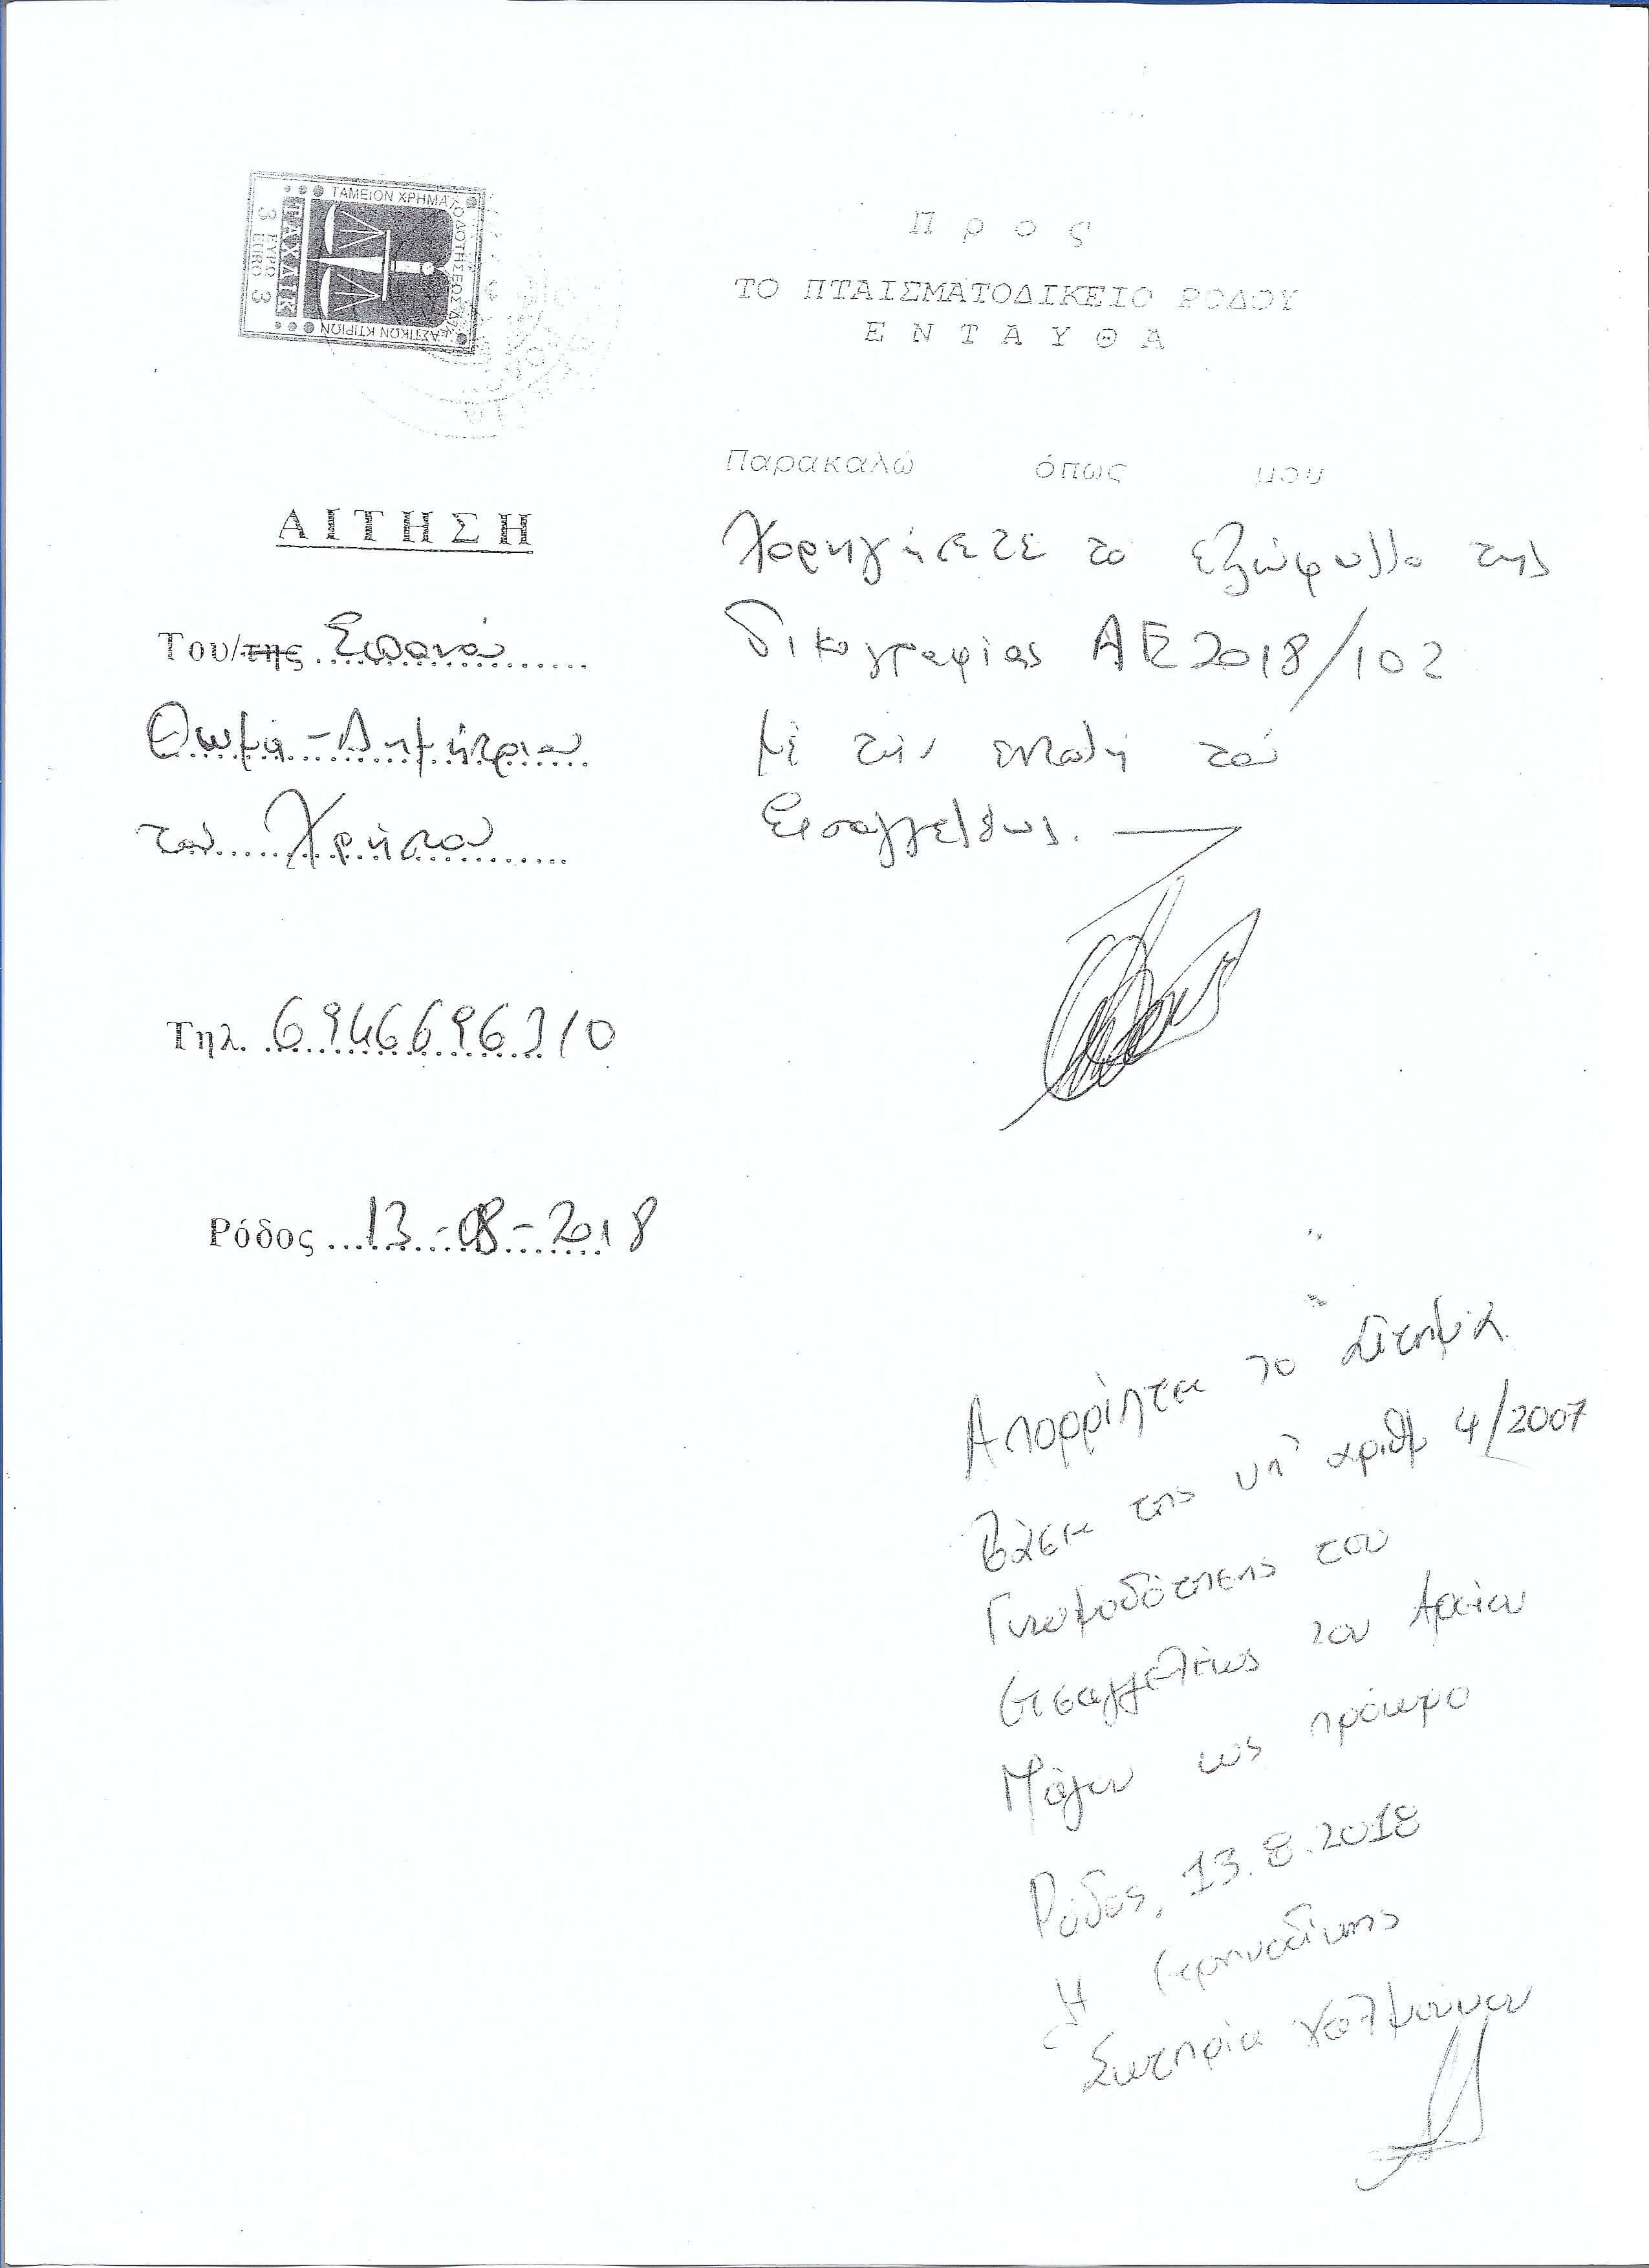 ΤΑΜΕΙΟΝ ΧΡΗΜΑΤΟΔΟΤΗΣΕΩΣ ΔΙΚΑΣΤΙΚΩΝ ΚΤΙΡΙΩΝ
ΤΑΧΔΙΚ
3 ΕΥΡΩ 3
EURO
Π ρ ο ς
ΤΟ ΠΤΑΙΣΜΑΤΟΔΙΚΕΙΟ ΡΟΔΟΥ
Ε Ν Τ Α Υ Θ Α
ΑΙΤΗΣΗ
Του/της
Θωμά-Δημήτριου
του Χρήστου
Τηλ. 6946696310
Ρόδος 13-08-2018
Παρακαλώ όπως μου
Χορηγήσετε το εξώφυλλο της
δικογραφίας ΑΕ2018/102
με την εντολή του
Εισαγγελέως.
Απορρίπτεται το αίτημα
βάσει της υπ' αριθμ 4/2007
Γνωμοδότησης του
Εισαγγελέως του Αρείου
Πάγου ως πρόωρο
Ρόδος, 13.8.2018
Η Ειρηνοδίκης
Σωτηρία